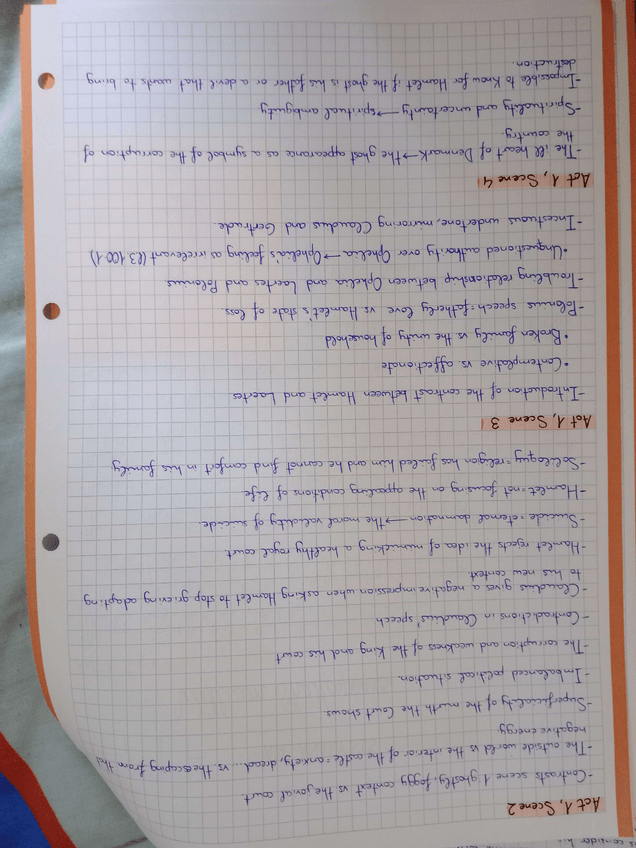 Act 1, Scene 2
-Contrasts scene 1 ghostly, foggy context vs the jovial court.
-The outside world vs the interior of the castle = anxiety, dread... vs. the escaping from that
negative energy
-Superficiality of the mirth the Court shows.
-Imbalanced political situation.
-The corruption and weakness of the King and his court
-Contradictions in Claudius' speech
-Claudius gives a negative impression when asking Hamlet to stop grieving adapting
to his new context
-Hamlet rejects the idea of mimicking a healthy royal court
-Suicide = eternal damnation → the moral validity of suicide.
-Hamlet = not focusing on the appealing conditions of life
-Soliloquy = religion has failed him and he cannot find comfort in his family
Act 1, Scene 3
-Introduction of the contrast between Hamlet and Laertes
•Contemplative vs. affectionate
•Broken family vs the unity of household
-Polonius speech = fatherly love vs Hamlet's state of loss.
-Troubling relationship between Ophelia and Laertes and Polonius
•Unquestioned authority over Ophelia → Ophelia's feeling as irrelevant (l3 100 1)
-Incestuous undertone, mirroring Claudius and Gertrude.
Act 1, Scene 4
-The ill heart of Denmark → the ghost appearance as a symbol of the corruption of
the country.
-Spirituality and uncertainty → spiritual ambiguity
-Impossible to know for Hamlet if the ghost is his father or a devil that wants to bring
destruction.
consider his